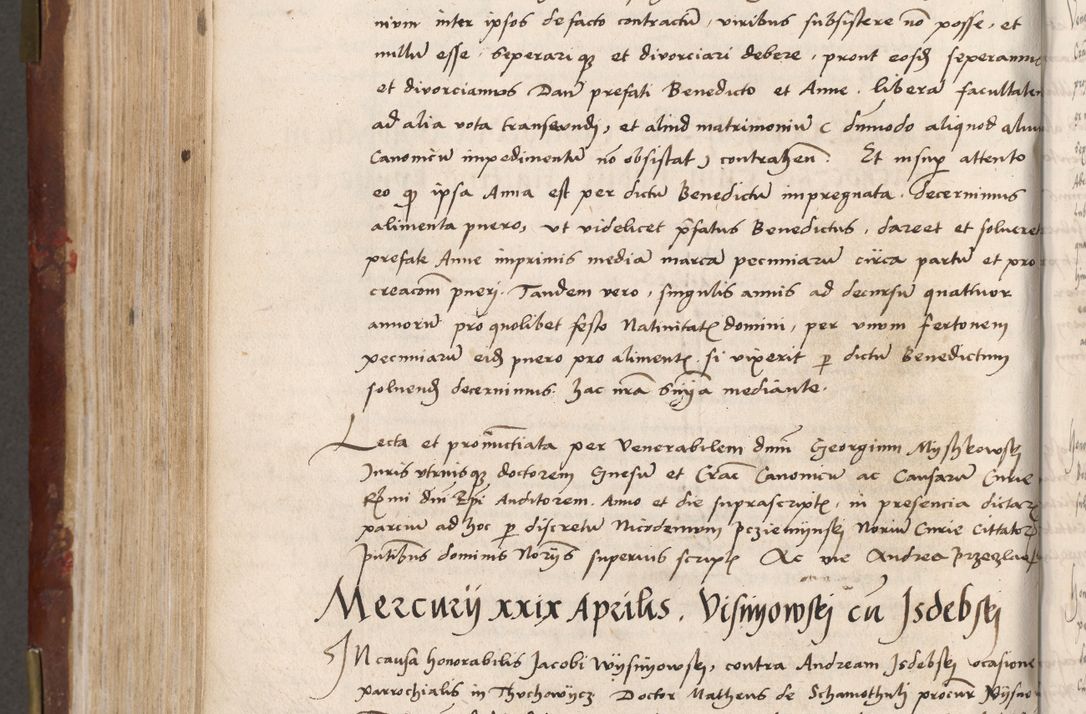 nium inter ipsos de facto contractū, viribus subsistere nō posse, et
nullū esse, Seperari q̄ et divorciari debere, prout eosđ seperamus
et divorciamus Dan̄ prefati Benedicto et Anne, liberā facultatem
ad alia vota transeundi, et aliud matrimoniū (dūmodo aliquod aliud
Canonicū impedimentū nō obsistat) contrahen̄. Et insup attento
eo q ipsa Anna est per dictū Benedictū impregnata, decernimus
alimenta puero, ut videlicet p̄fatus Benedictus, daret et solueret
prefate Anne imprimis mediā marcā pecuniarū circa partū et pro
creacōm pueri. Tandem vero, singulis annis ad decursū quattuor
annorū pro quolibet festo Natiuitatꝭ domini, per unum fertonem
pecuniarū eiđ puero pro alimentꝭ si vixerit p dictū Benedictum
soluenđ decernimus. hac nrā sn̄ia mediante.
Lecta et pronūctiata per Venerabilem dūm Georgium Myszkowskj
Iuris utriusq doctorem Gnesn̄ et Crac Canonicū ac Causarū Curie
Rm̄i Dn̄i Epi Auditorem. Anno et die suprascriptꝭ, in presencia dictarꝝ
parciū ad hoc p discretū Nicodemum Pczieminskj Noriū Curie Cittatorꝝ
p̄ntibus dominis Noriis superius scriptꝭ Ac me Andrea
Mercurij xxix Aprilis. Visnyowskj cū Isdebskj
IN causa honorabilis Jacobi Wysnyowskj, contra Andream Isdebskj ocasione
parrochialis in Thuchowycz Doctor Matheus de Schamothuli procur Wysno